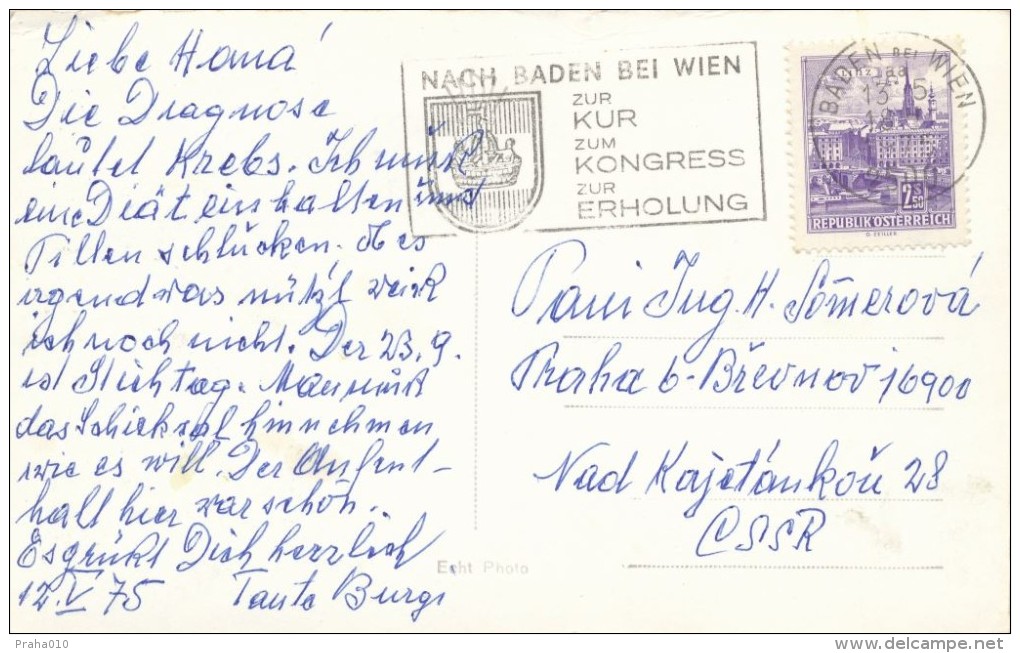 Liebe Hana'
Die Diagnose
lautet Krebs. Ich muß
eine Diät einhalten und
Pillen schlucken. Ob es
irgend was nützt weiß
ich noch nicht. Der 23.9.
ist Stichtag. Man muß
das Schicksal hinnehmen
wie es will. Der Aufent-
halt hier war schön.
Es grüßt Dich herzlich
12.V.75 Tante Burgi
NACH BADEN BEI WIEN
ZUR
KUR
ZUM
KONGRESS
ZUR
ERHOLUNG
BADEN BEI WIEN
2.50
REPUBLIK ÖSTERREICH
Pani Ing. H. Sômerová
Praha 6-Břevnov 16900
Nad Kajetánkou 28
ČSSR
Echt Photo
Praha010
delcampe.net